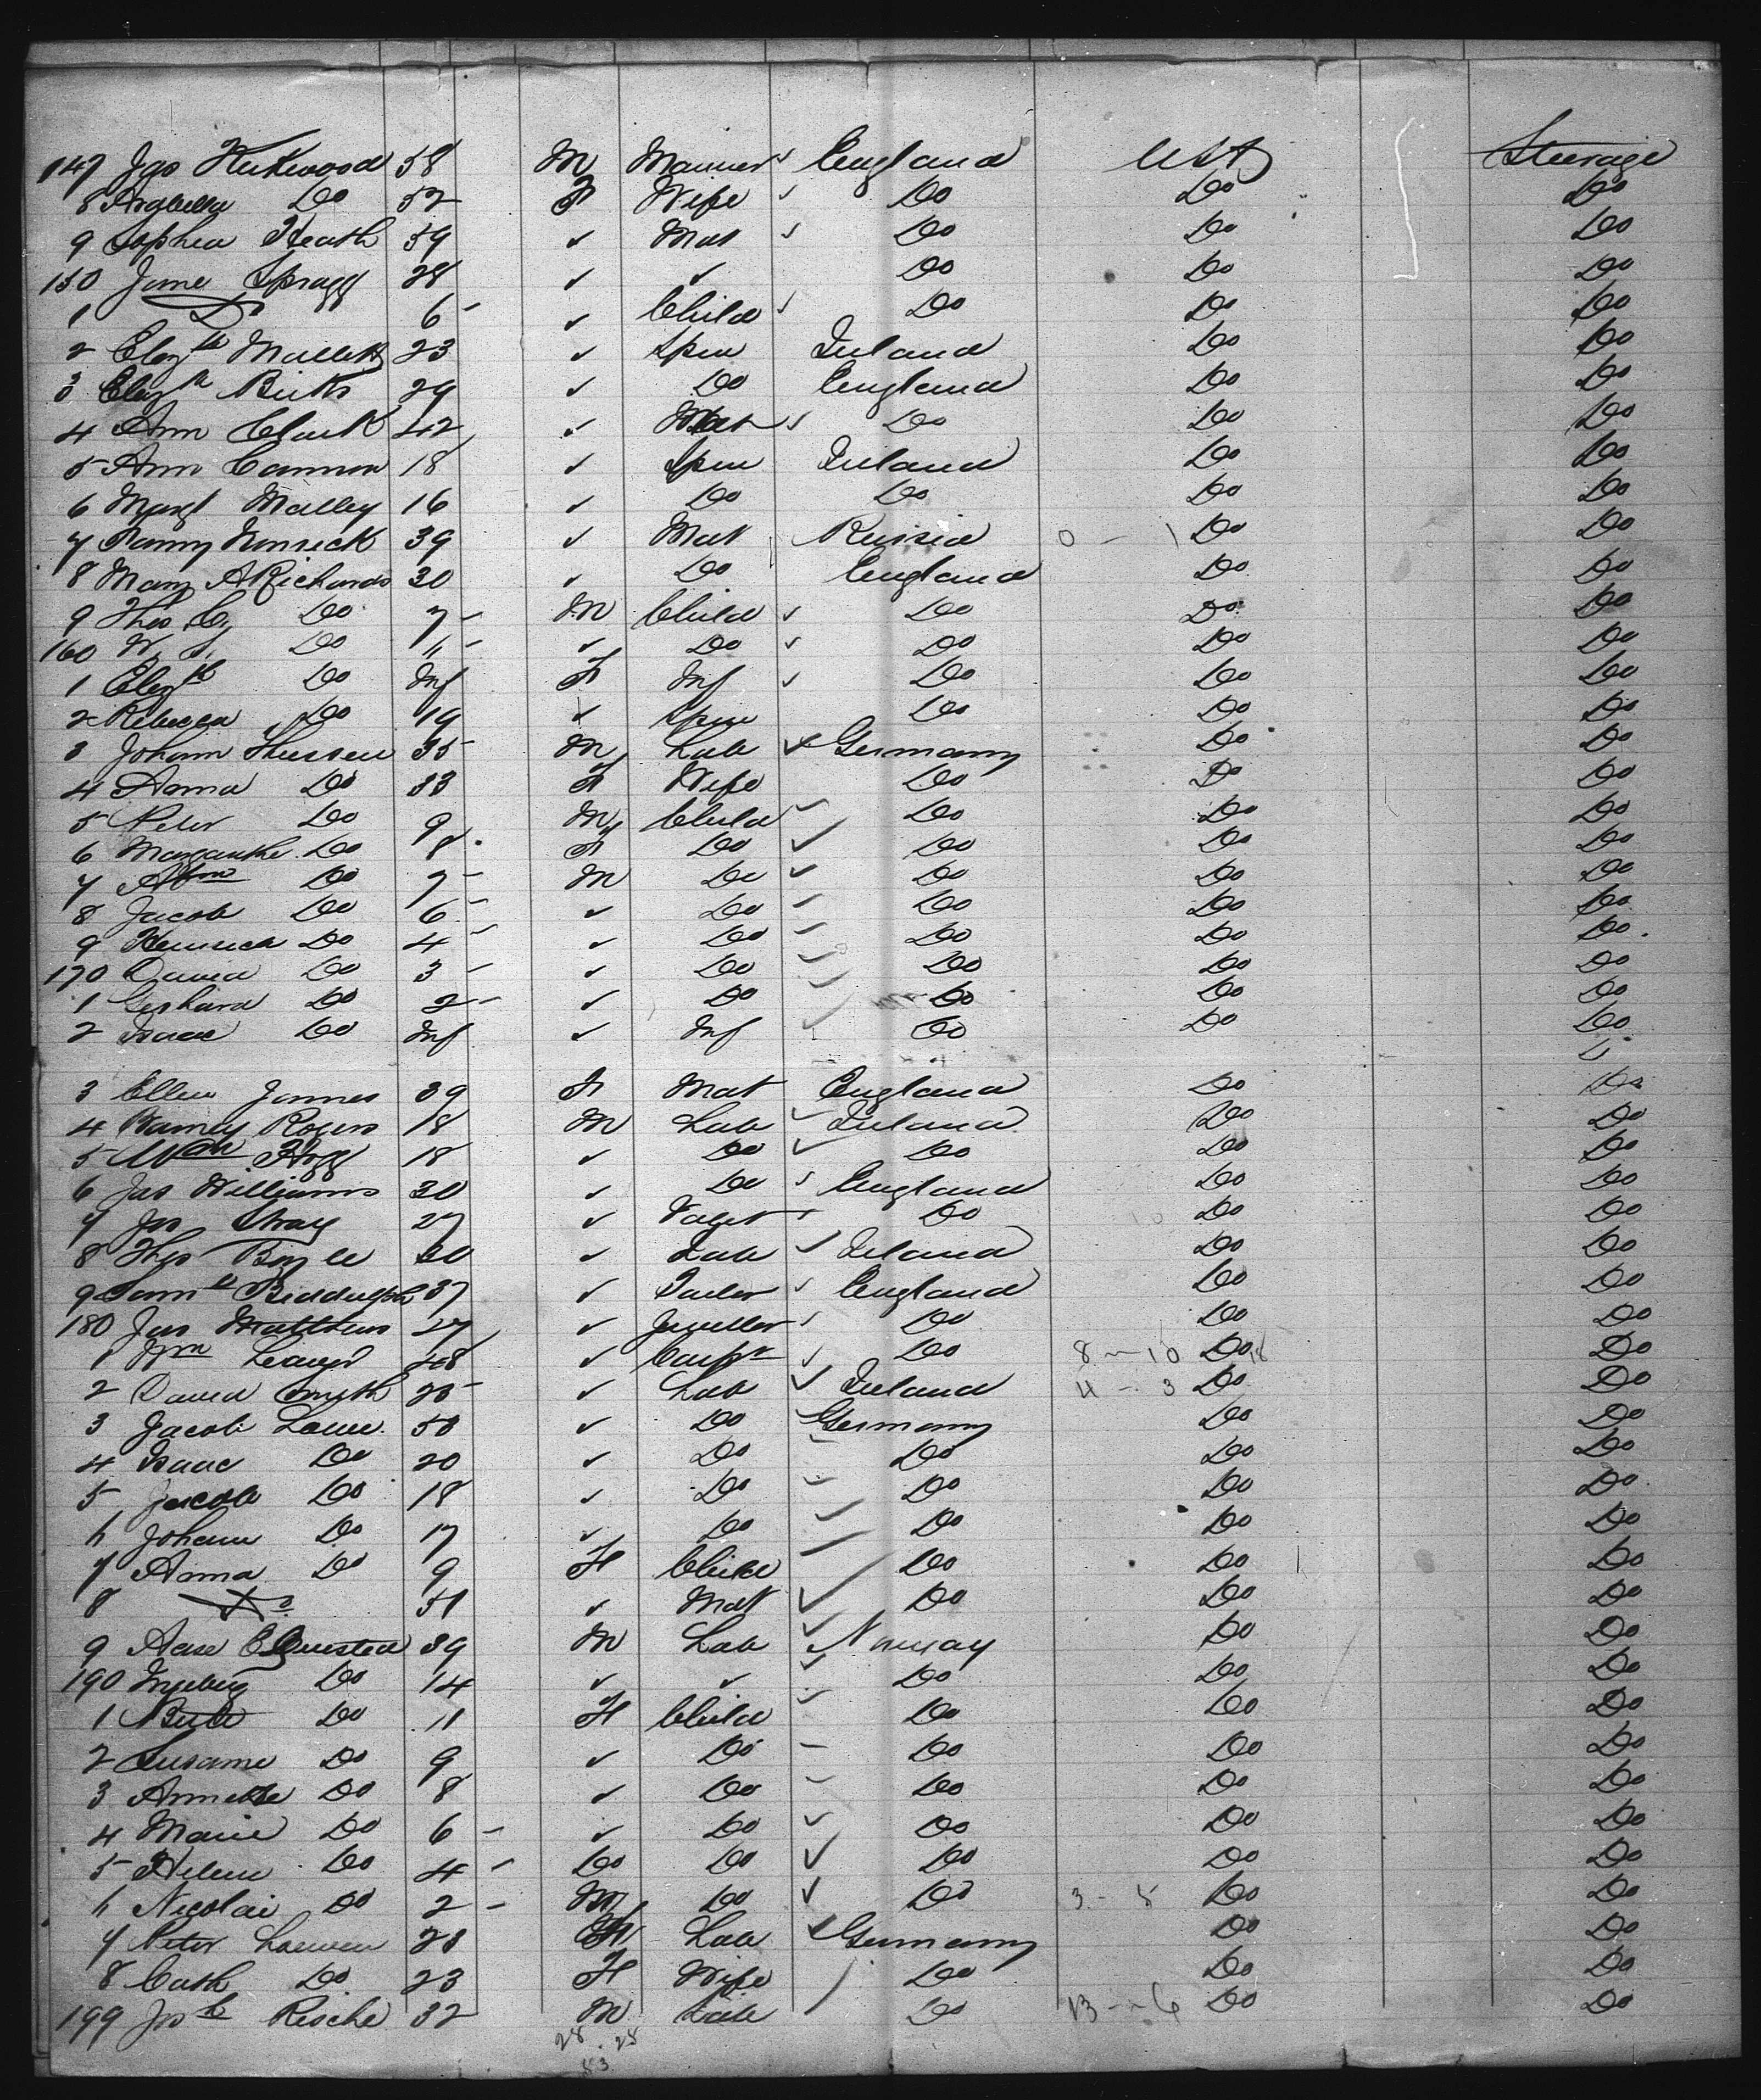 147 Jas Kirkwood 58 M Mariner England USA Steerage
8 Arabella Do 52 F Wife Do Do Do
9 Sophia Heath 59 ✓ Mat Do Do Do
150 Jane Spragg 28 ✓ ✓ Do Do Do
1 Do 6 ✓ Child Do Do Do
2 Elizth Mullett 23 ✓ Spin Ireland Do Do
3 Elizth Birks 29 ✓ Do England Do Do
4 Ann Clark 42 ✓ Mat Do Do Do
5 Ann Cannon 18 ✓ Spin Ireland Do Do
6 Margt Malley 16 ✓ Do Do Do Do
7 Fanny 39 ✓ Mat Russia 0 - 1 Do Do
8 Mary A Richards 30 ✓ Do England Do Do
9 Thos C Do 7 M Child Do Do Do
160 W. J. Do ✓ Do Do Do Do
1 Elizth Do Inf F Inf Do Do Do
2 Rebecca Do 19 ✓ Spin Do Do Do
3 Johann Thiessen 35 M Lab Germany Do Do
4 Anna Do 33 F Wife Do Do Do
5 Peter Do 9 M Child Do Do Do
6 Margarethe Do 8 F Do Do Do Do
7 Abm Do 7 M Do Do Do Do
8 Jacob Do 6 ✓ Do Do Do Do
9 Heinrich Do 4 ✓ Do Do Do Do
170 David Do 3 ✓ Do Do Do Do
1 Gerhard Do 2 ✓ Do Do Do Do
2 Isaac Do Inf ✓ Inf Do Do Do
3 Ellen Jonnes 39 F Mat England Do Do
4 Barney Rogers 18 M Lab Ireland Do Do
5 Wm Hogg 18 ✓ Do Do Do Do
6 Jas Williams 30 ✓ Do England Do Do
7 Jas Stray 27 ✓ Do Do Do
8 Thos Boyle 20 ✓ Lab Ireland Do Do
9 Saml Biddulph 37 ✓ Tailor England Do Do
180 Jas Matthews 27 ✓ Jeweller Do Do Do
1 Wm 48 ✓ Carpr Do 8 - 10 Do 18 Do
2 David Smyth 20 ✓ Lab Ireland 4 - 3 Do Do
3 Jacob Loewen 50 ✓ Do Germany Do Do
4 Isaac Do 20 ✓ Do Do Do Do
5 Jacob Do 18 ✓ Do Do Do Do
6 Johann Do 17 ✓ Do Do Do Do
7 Anna Do 9 F Child Do Do Do
8 Do 51 ✓ Mat Do Do Do
9 Aase 39 M Lab Norway Do Do
190 Ingeborg Do 14 ✓ ✓ Do Do Do
1 Do 11 F Child Do Do Do
2 Susanne Do 9 ✓ Do Do Do Do
3 Annette Do 8 ✓ Do Do Do Do
4 Marie Do 6 ✓ Do Do Do Do
5 Helene Do 4 Do Do Do Do Do
6 Nicolai Do 2 M Do Do 3 - 5 Do Do
7 Peter Loewen 28 M Lab Germany Do Do
8 Cath Do 23 F Wife Do Do Do
199 Josh Resche 32 M Lab Do 13 - 6 Do Do
28 . 25
53